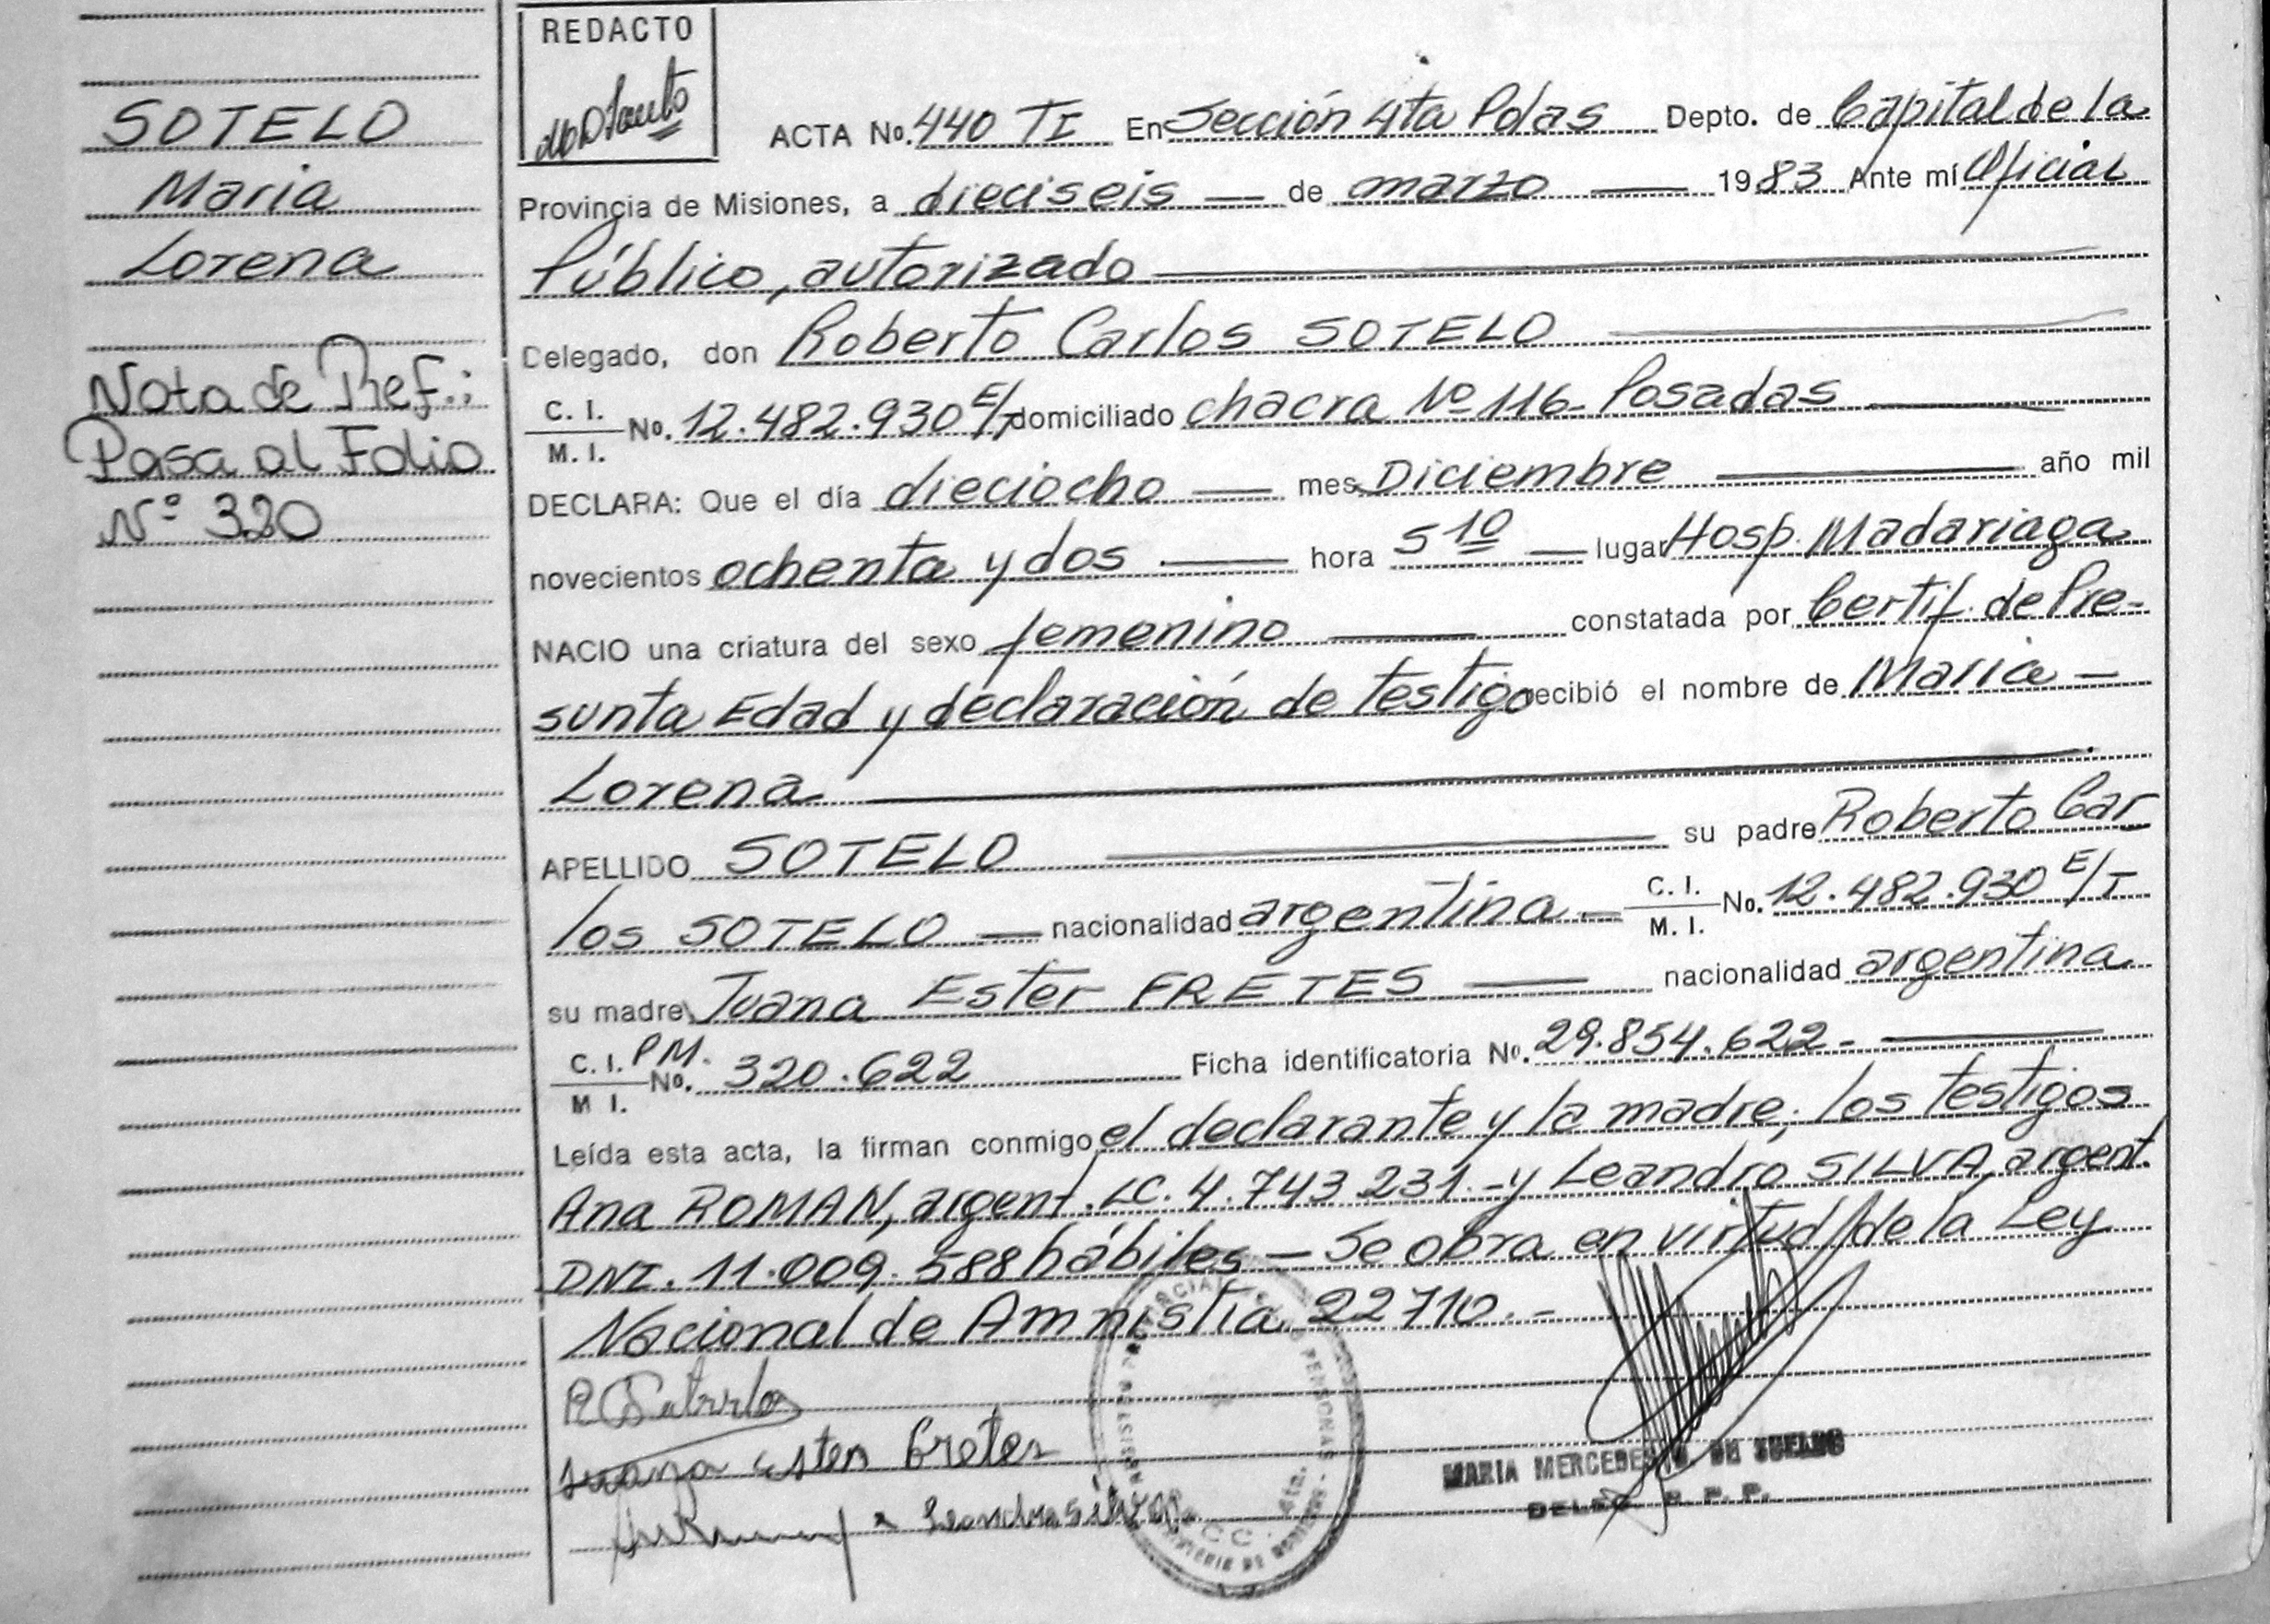 SOTELO
Maria
Lorena
Nota de Ref.:
Pasa al Folio
Nº 320
REDACTO
ACTA No. 440 TI En Sección 4ta Pdas Depto. de Capital de la
Provincia de Misiones, a dieciseis — de marzo — 1983 Ante mí Oficial
Público, autorizado
Delegado, don Roberto Carlos SOTELO
C. I.
M. I. No. 12.482.930 E/T domiciliado chacra Nº 116- Posadas
DECLARA: Que el día dieciocho — mes Diciembre — año mil
novecientos ochenta y dos — hora 5 10 — lugar Hosp. Madariaga
NACIO una criatura del sexo femenino — constatada por Certif. de Pre-
sunta Edad y declaración de testigo recibió el nombre de Maria —
Lorena
APELLIDO SOTELO su padre Roberto Car
los SOTELO — nacionalidad argentina — C. I.
M. I. No. 12.482.930 E/T
su madre Juana Ester FRETES — nacionalidad argentina
C. I. P.M.
M I. No. 320.622 Ficha identificatoria No. 29.854.622-
Leída esta acta, la firman conmigo el declarante y la madre, los testigos
Ana ROMAN, argent. LC. 4.743 231.- y Leandro SILVA, argent.
DNI. 11.009.588 hábiles — Se obra en virtud de la Ley
Nacional de Amnistía 22710.-
Juana Ester Fretes
Leandro Silva
MARIA MERCEDES DE
R. P. P.